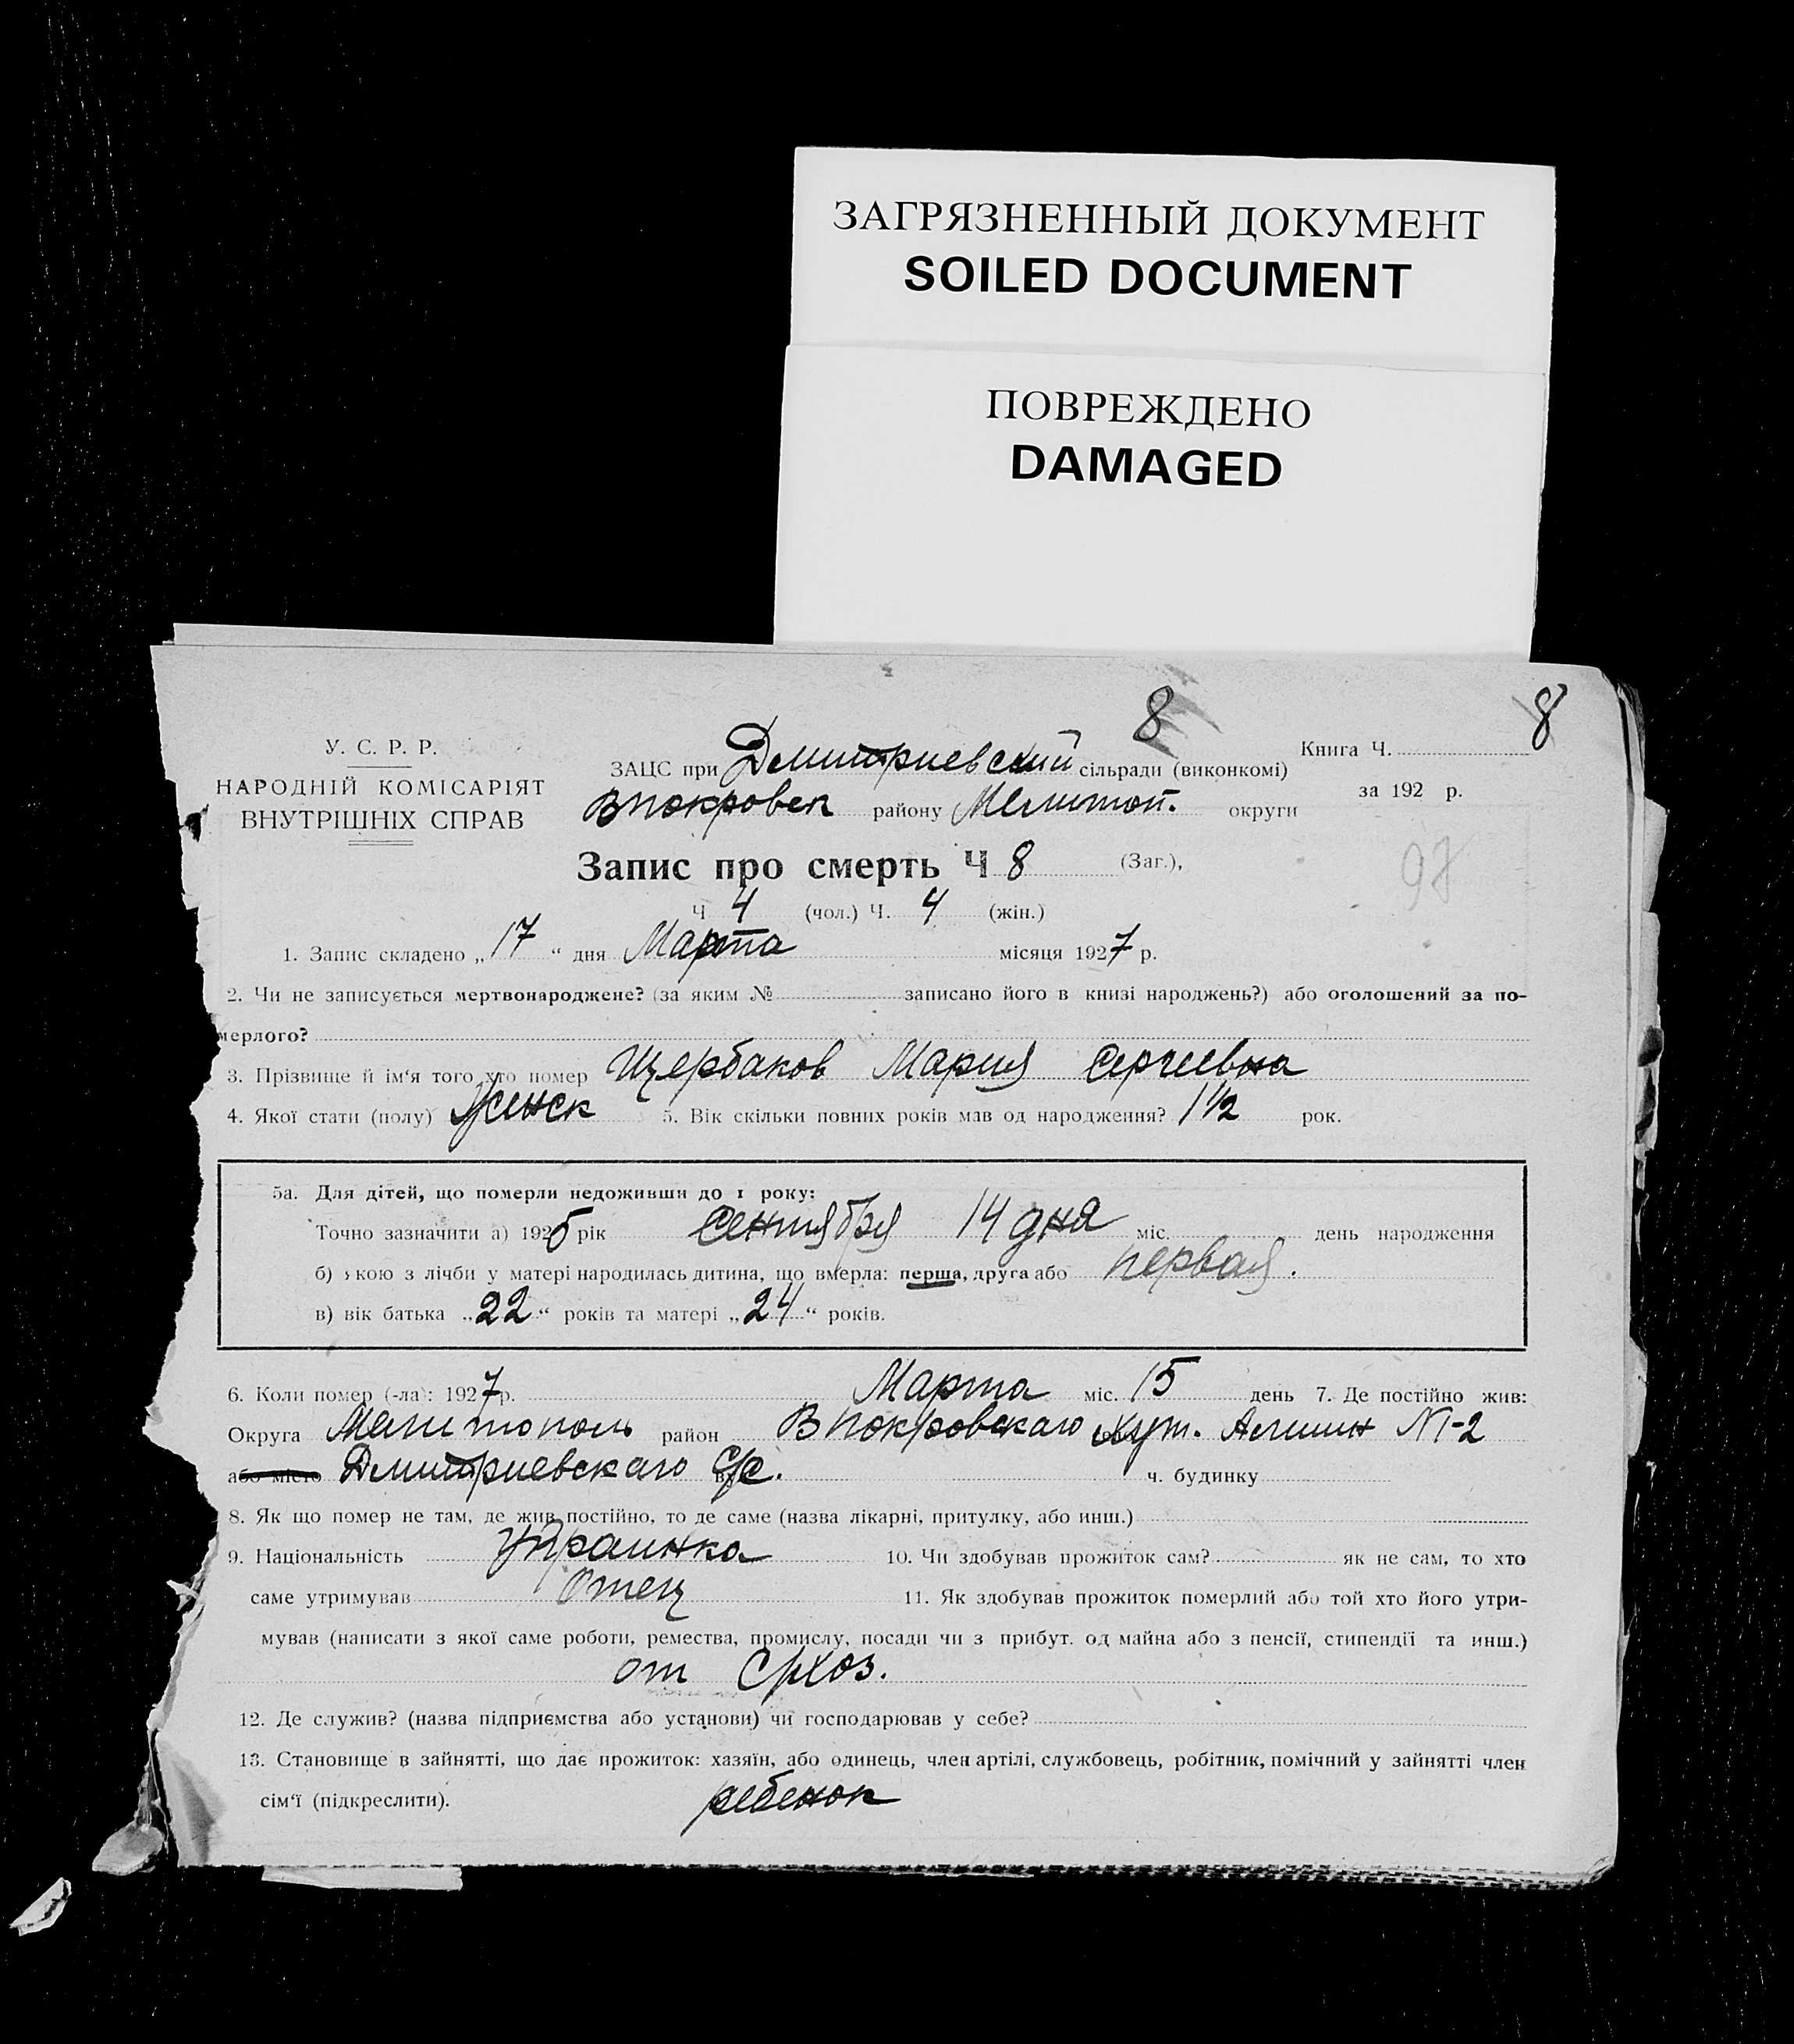 ЗАГРЯЗНЕННЫЙ ДОКУМЕНТ
SOILED DOCUMENT
ПОВРЕЖДЕНО
DAMAGED
8
8
У. С. Р. Р.
НАРОДНІЙ КОМІСАРІЯТ
ВНУТРІШНІХ СПРАВ
ЗАЦС при Дмитриевский сільради (виконкомі)
Впокровск району Мелитоп. округи
Книга Ч.
за 192 р.
Запис про смерть Ч 8 (Заг.),
Ч 4 (чол.) Ч. 4 (жін.)
98
1. Запис складено „17“ дня Марта місяця 1927 р.
2. Чи не записується мертвонароджене? (за яким № записано його в книзі народжень?) або оголошений за по-
мерлого?
3. Прізвище й ім‘я того хто помер Щербаков Мария Сергеевна
4. Якої стати (полу) Женск 5. Вік скільки повних років мав од народження? 1½ рок.
5а. Для дітей, що померли недоживши до 1 року:
Точно зазначити а) 1925 рік Сентября 14 дня міс. день народження
б) якою з лічби у матері народилась дитина, що вмерла: перша, друга або первая.
в) вік батька „22“ років та матері „24“ років.
6. Коли помер (-ла): 1927 р. Марта міс. 15 день 7. Де постійно жив:
Округа Мелитополь район Впокровскаго хут. №-2
або місто Дмитриевскаго С/с. ч. будинку
8. Як що помер не там, де жив постійно, то де саме (назва лікарні, притулку, або инш.)
9. Національність украинка 10. Чи здобував прожиток сам? як не сам, то хто
саме утримував Отец 11. Як здобував прожиток померлий або той хто його утри-
мував (написати з якої саме роботи, ремества, промислу, посади чи з прибут. од майна або з пенсії, стипендії та инш.)
от С/хоз.
12. Де служив? (назва підприємства або установи) чи господарював у себе?
13. Становище в зайнятті, що дає прожиток: хазяїн, або одинець, член артілі, службовець, робітник, помічний у зайнятті член
сім‘ї (підкреслити). ребенок